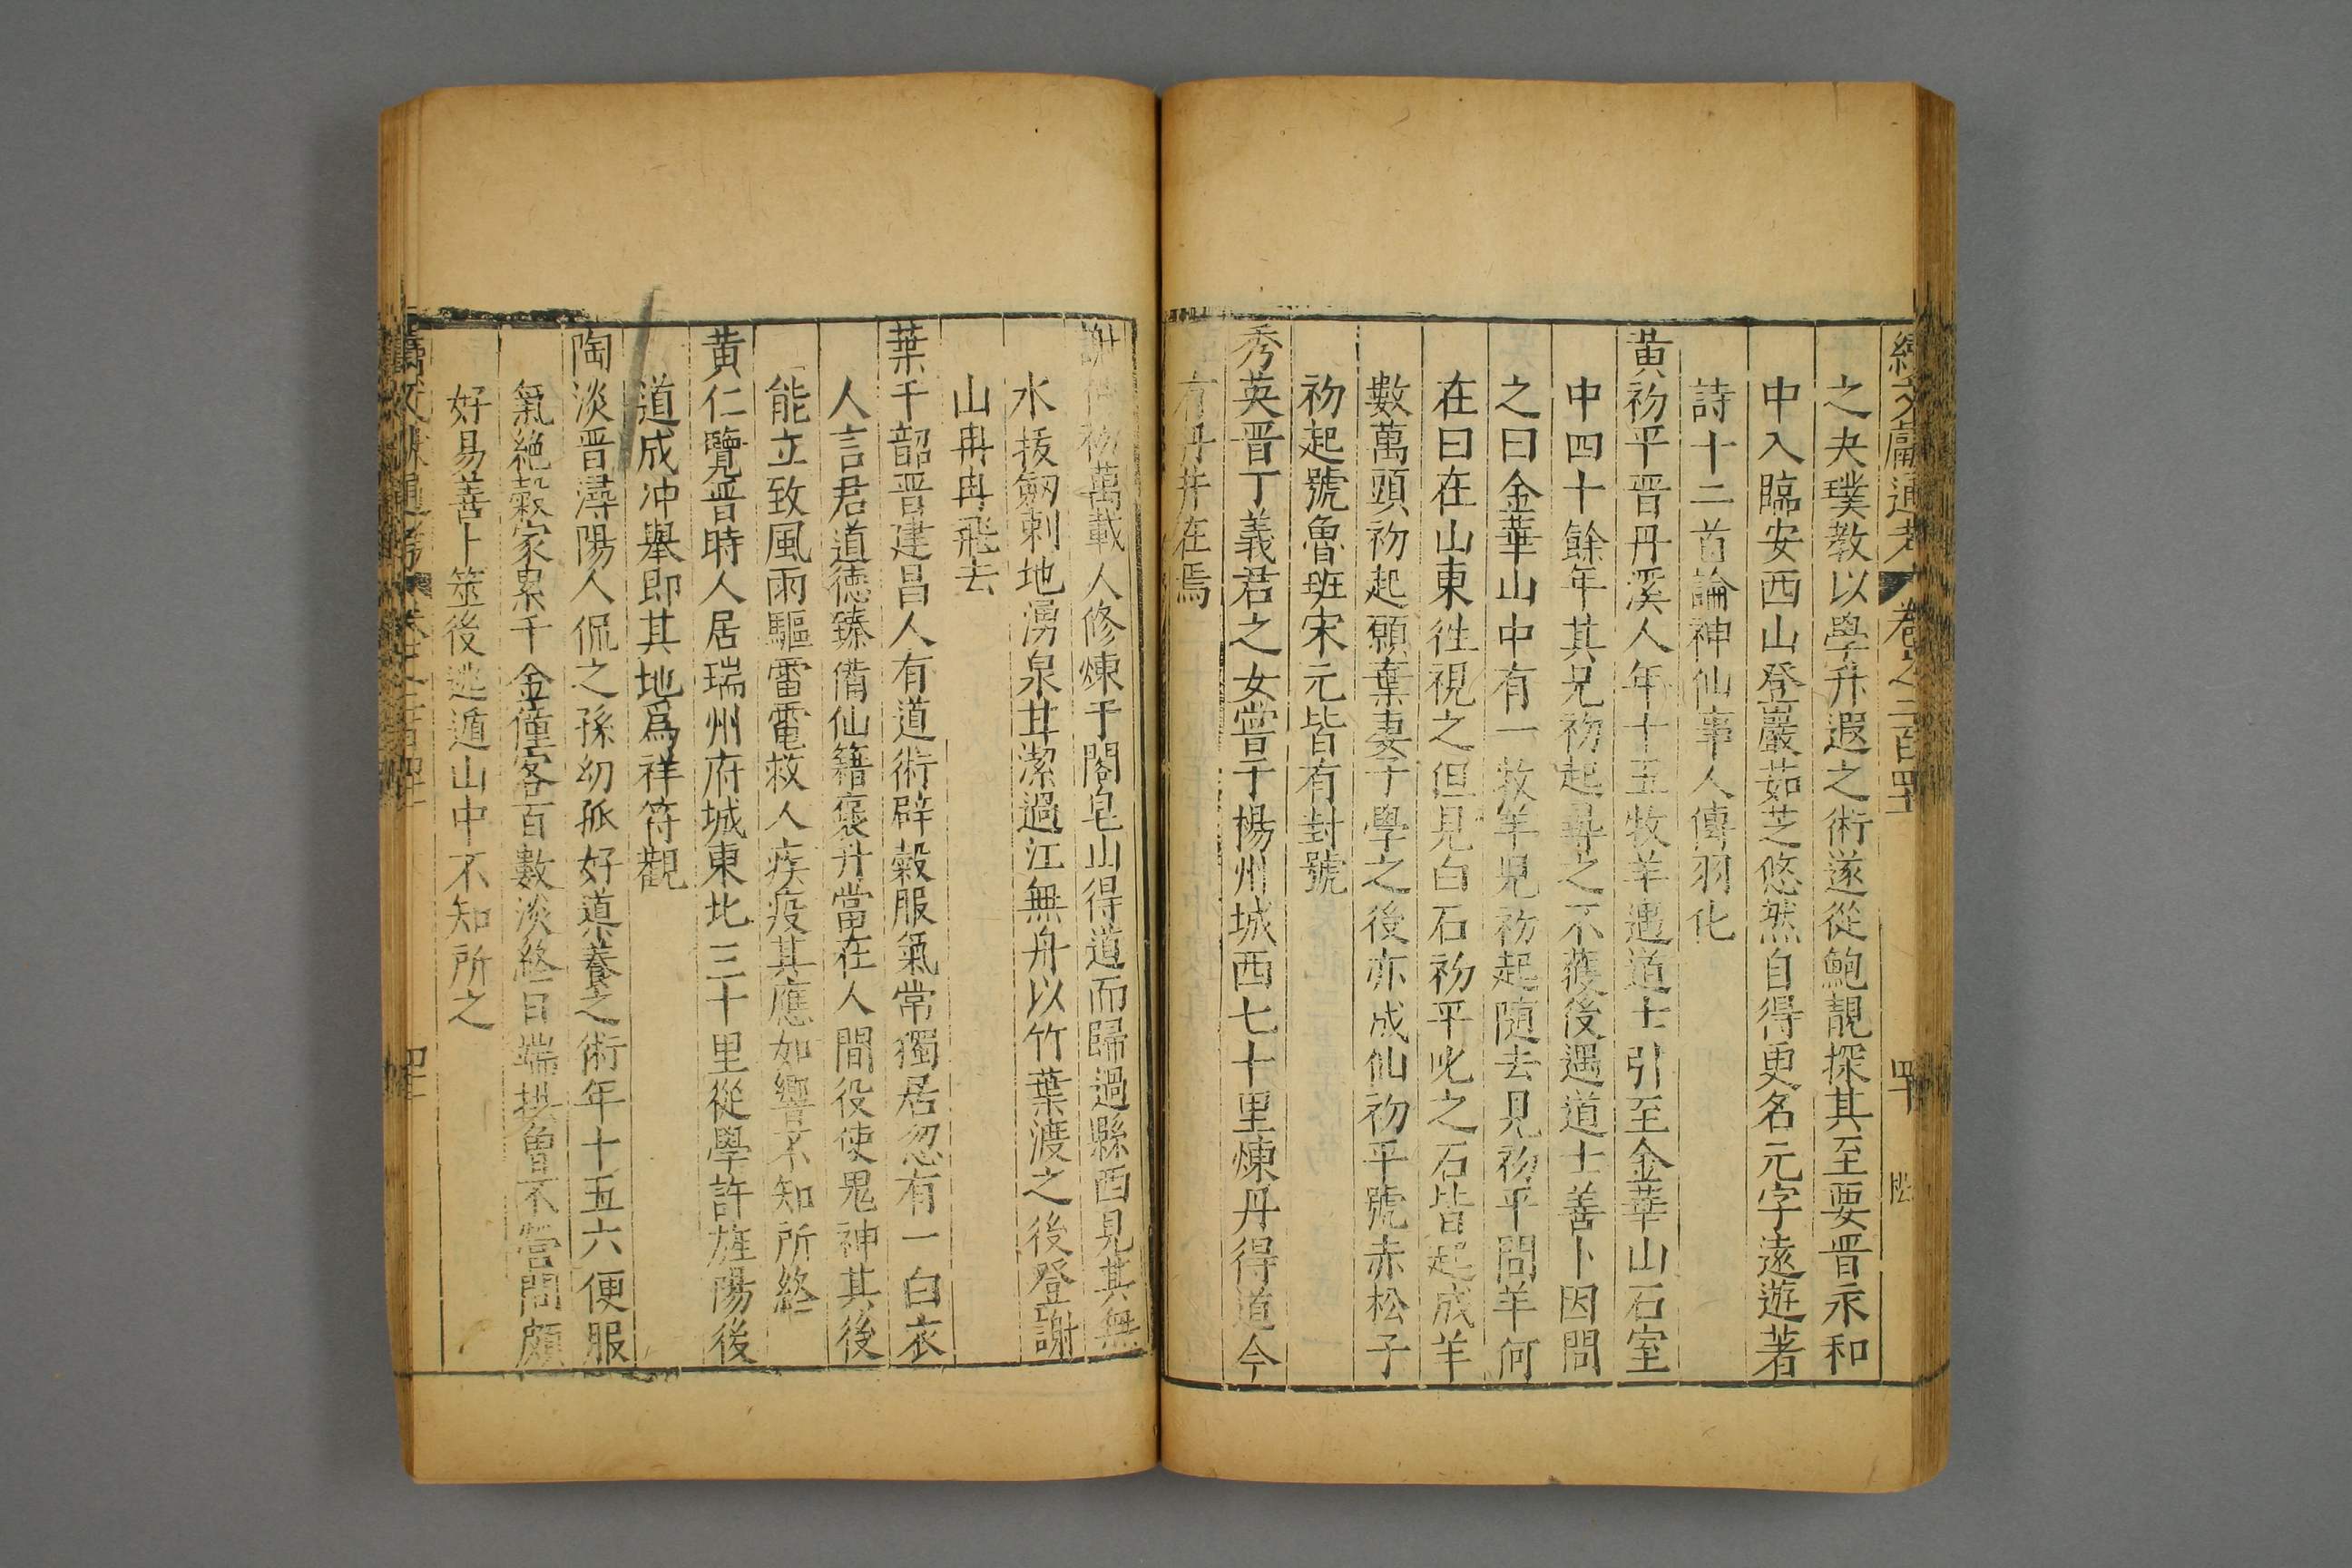 續文獻通考 卷之二百四十 四十
之夬璞教以學升遐之術遂從鮑靚探其至要晋永和
中入臨安西山登巖茹芝悠然自得更名元字遠遊著
詩十二首論神仙事人傳羽化
黃初平晋丹溪人年十五牧羊遇道士引至金華山石室
中四十餘年其兄初起尋之不獲後遇道士善卜因問
之曰金華山中有一牧羊兒初起隨去見初平問羊何
在曰在山東徃視之但見白石初平叱之石皆起成羊
數萬頭初起願棄妻子學之後亦成仙初平號赤松子
初起號魯班宋元皆有封號
秀英晋丁義君之女嘗于楊州城西七十里煉丹得道今
有丹井在焉
謝仲初萬載人修煉于閤皂山得道而歸過縣西見其無
水拔劒刺地湧泉甘潔過江無舟以竹葉渡之後登謝
山冉冉飛去
葉千韶晋建昌人有道術辟穀服氣常獨居忽有一白衣
人言君道徳臻備仙籍褒升當在人間役使鬼神其後
能立致風雨驅雷電救人疾疫其應如響不知所終
黄仁覽晋時人居瑞州府城東北三十里從學許旌陽後
道成冲舉即其地爲祥符觀
陶淡晋潯陽人侃之孫幼孤好道養之術年十五六便服
氣絶穀家累千金僮客百數淡終日端拱曾不營問頗
好易善卜筮後逃遁山中不知所之